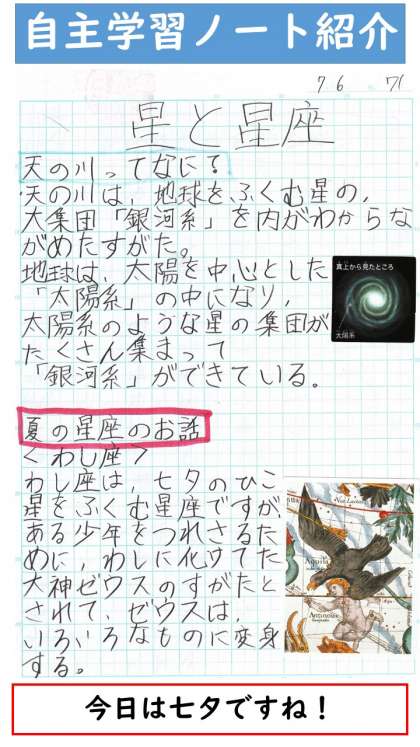 自主学習ノート紹介
7 6 71
星と星座
天の川ってなに？
・天の川は、地球をふくむ星の、
大集団「銀河系」を内がわからな
がめたすがた。
地球は、太陽を中心とした
「太陽系」の中になり、
太陽系のような星の集団が
たくさん集まって
「銀河系」ができている。
真上から見たところ
太陽系
夏の星座のお話
くわし座＞
わし座は、七夕のひこ
星をふくむ星座ですが、
ある少年をつれさるた
めに、わしに化けてた
大神ゼウスのすがたと
されて、ゼウスは、
いろいろなものに変身
する。
Aquila
Antinous
今日は七夕ですね！